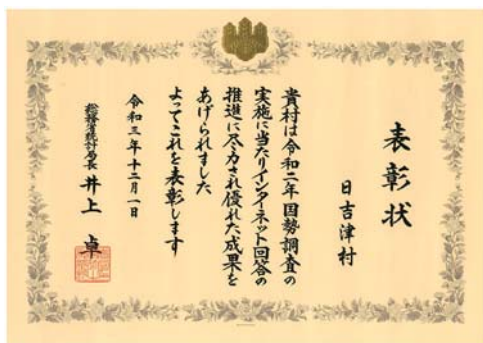 表彰状
日吉津村
貴村は令和二年国勢調査の
実施に当たりインターネット回答の
推進に尽力され優れた成果を
あげられました
よってこれを表彰します
令和三年十二月一日
総務省統計局長 井上 卓